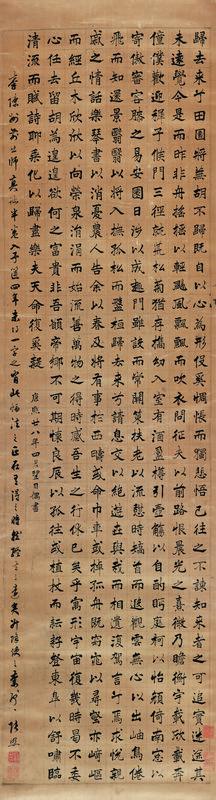 歸去來兮田園將無胡不歸既自以心為形役奚惆悵而獨悲悟已往之不諫知來者之可追實迷途其
未遠覺今是而昨非舟搖搖以輕颺風飄飄而吹衣問征夫以前路恨晨光之喜微乃瞻衡宇載欣載奔
僮僕歡迎稚子候門三徑就荒松菊猶存携幼入室有酒盈樽引壺觴以自酌眄庭柯以怡顏倚南窓以
寄傲審容膝之易安園日涉以成趣門雖設而常關策扶老以流憩時矯首而遐觀雲無心以出岫鳥倦
飛而知還景翳翳以將入撫孤松而盤桓歸去來兮請息交以絶遊世與我而相遺復駕言兮焉求悅親
戚之情話樂琴書以消憂農人告余以春及將有事於西疇或命巾車或棹孤舟既窈窕以尋壑亦崎嶇
而經丘木欣欣以向榮泉涓涓而始流善萬物之得時感吾生之行休已矣乎寓形宇內復幾時曷不委
心任去留胡為遑遑欲何之富貴非吾願帝鄉不可期懷良辰以孤往或植杖而耘耔登東皋以舒嘯臨
清流而賦詩聊乘化以歸盡樂夫天命復奚疑
康熙廿八年四月望日